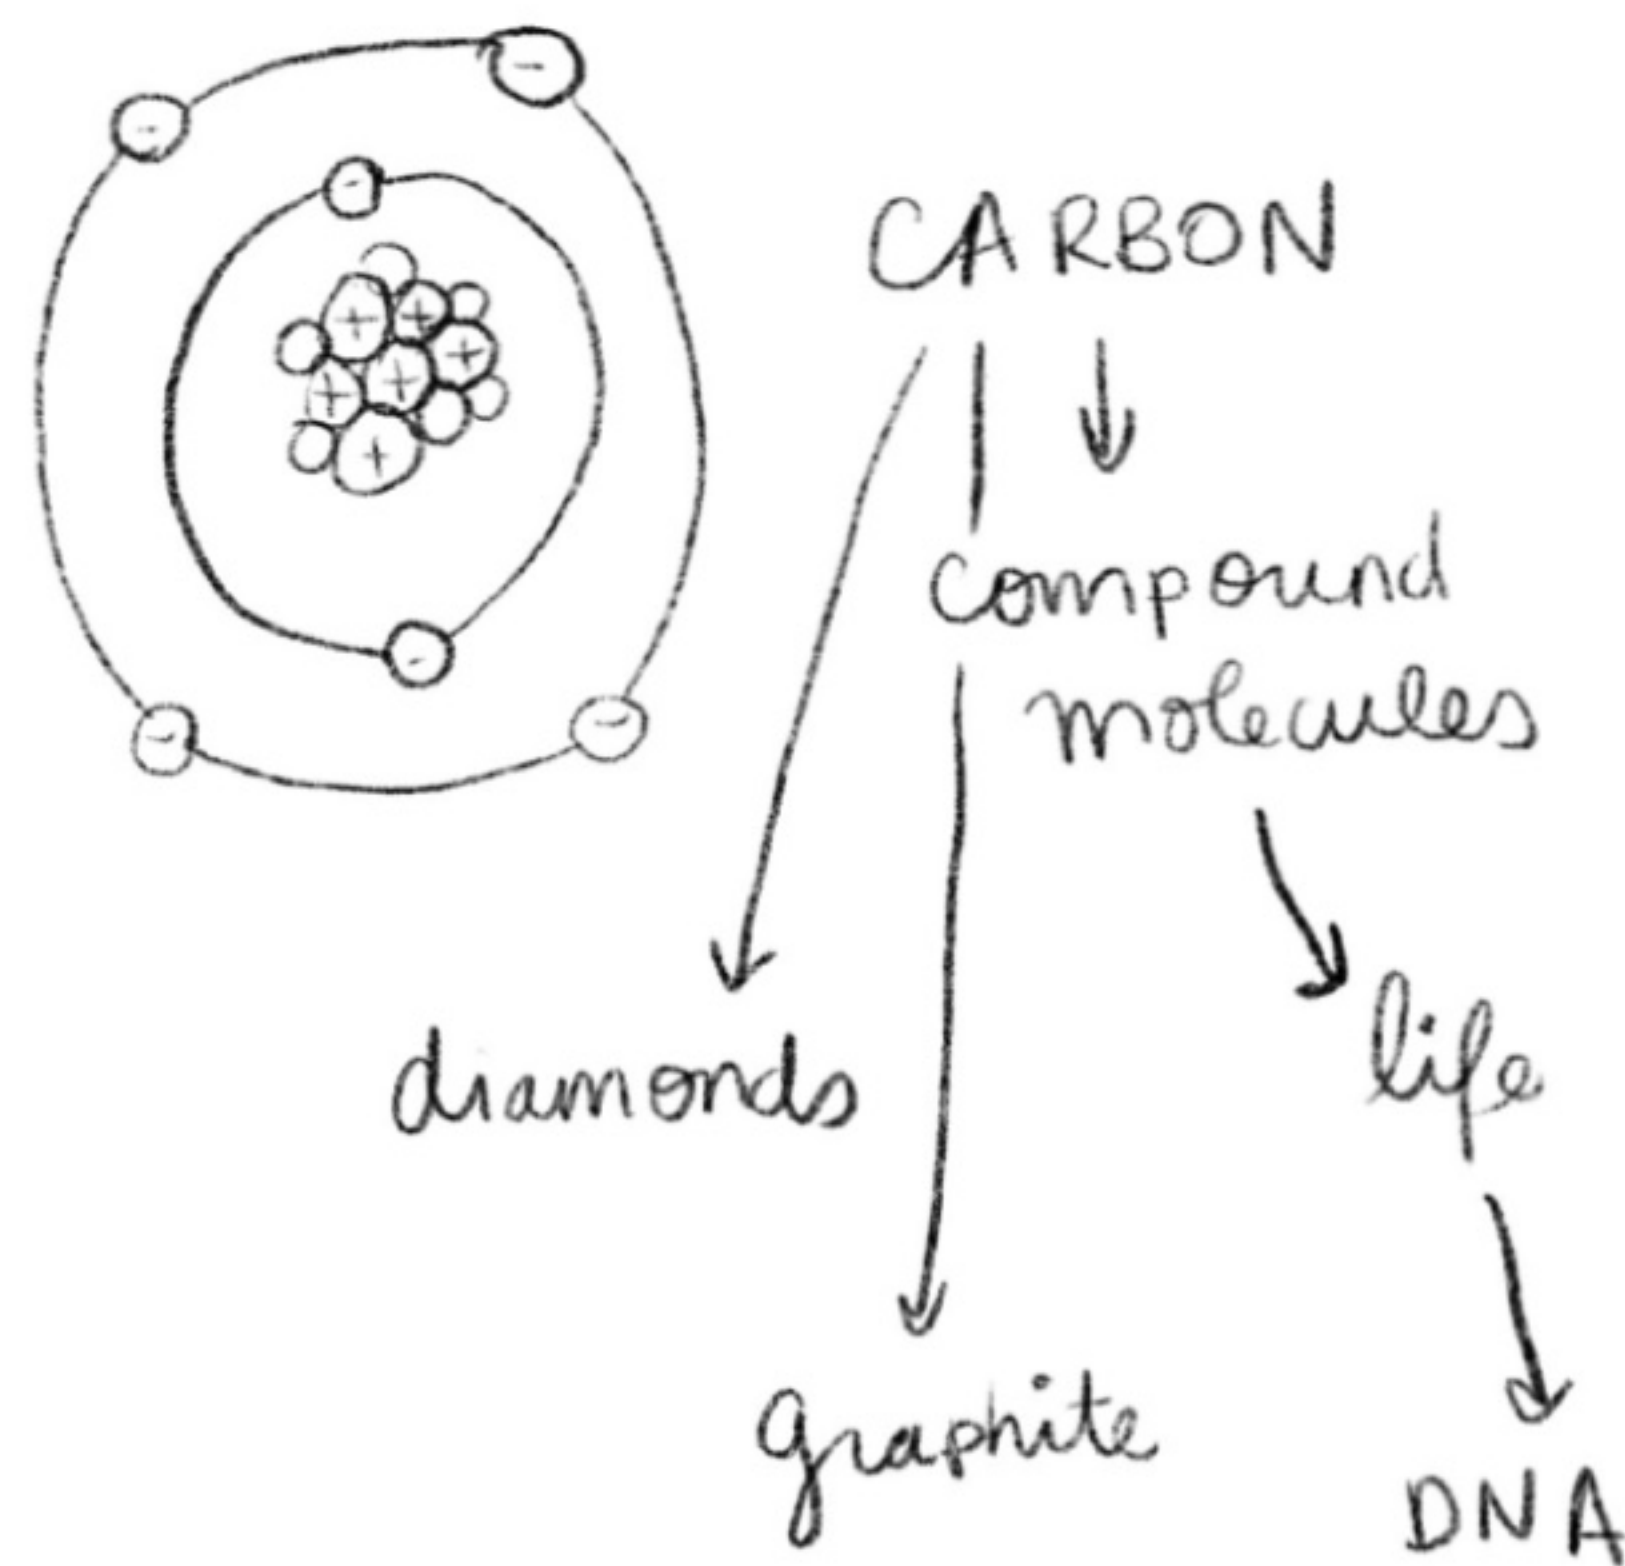 CARBON
compound
molecules
diamonds
life
graphite
DNA